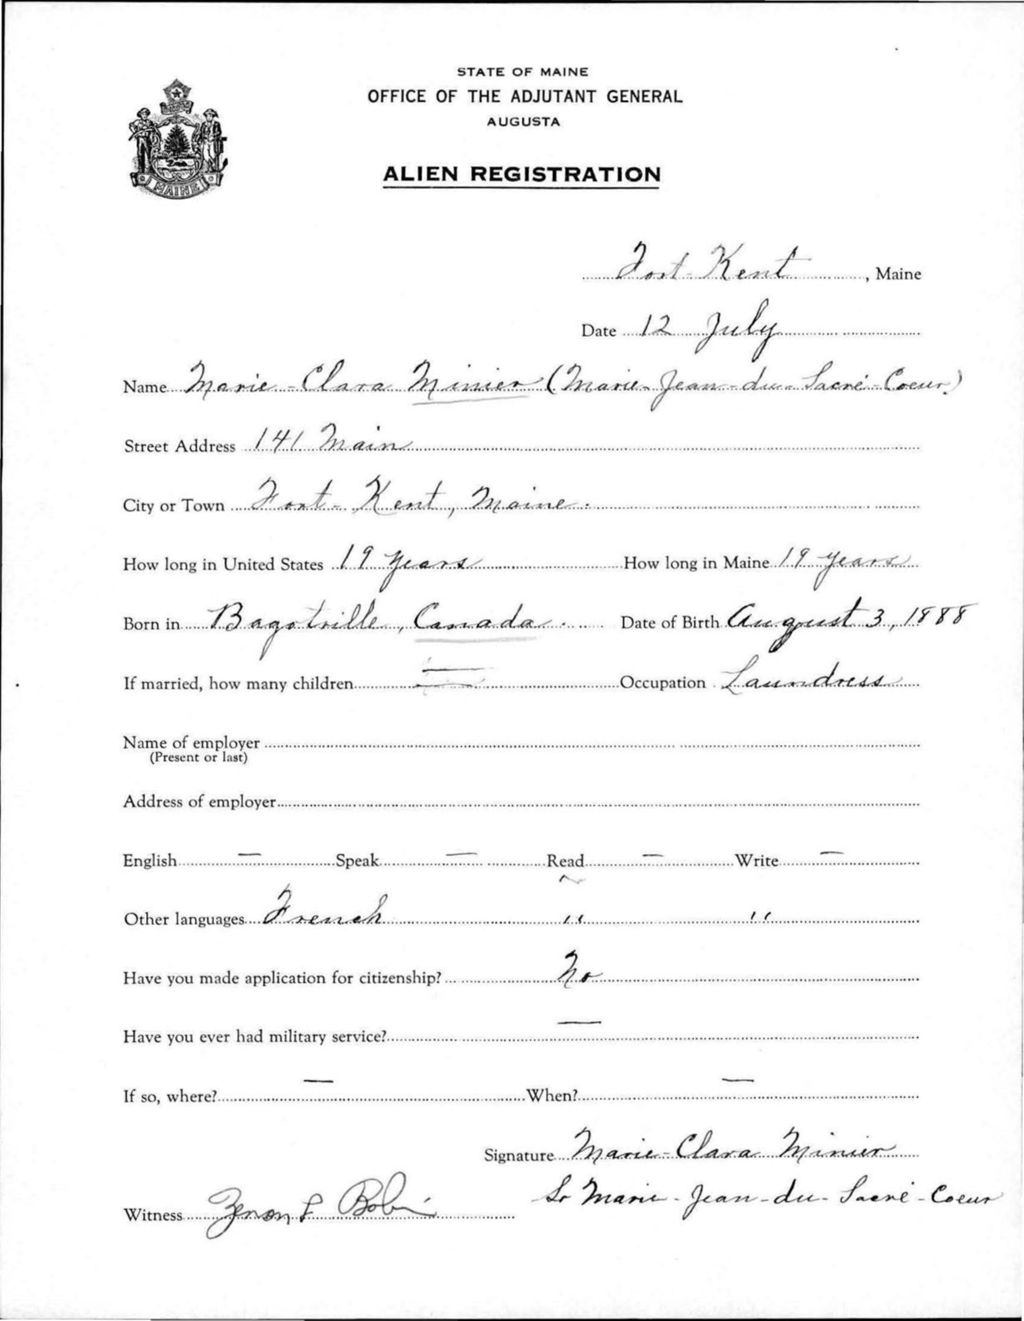 STATE OF MAINE
OFFICE OF THE ADJUTANT GENERAL
AUGUSTA
ALIEN REGISTRATION
MAINE
Fort-Kent, Maine
Date 12 July
Name Marie-Clara Minier (Marie-Jean-du-Sacré-Coeur)
Street Address 141 Main
City or Town Fort-Kent, Maine.
How long in United States 19 years How long in Maine 19 years
Born in Bagotville, Canada. Date of Birth August 3, 1888
If married, how many children — Occupation Laundress
Name of employer
(Present or last)
Address of employer
English — Speak — Read — Write —
Other languages French " "
Have you made application for citizenship? No
Have you ever had military service? —
If so, where? — When? —
Signature Marie-Clara Minier
Sr Marie-Jean-du-Sacré-Coeur
Witness Zenon P